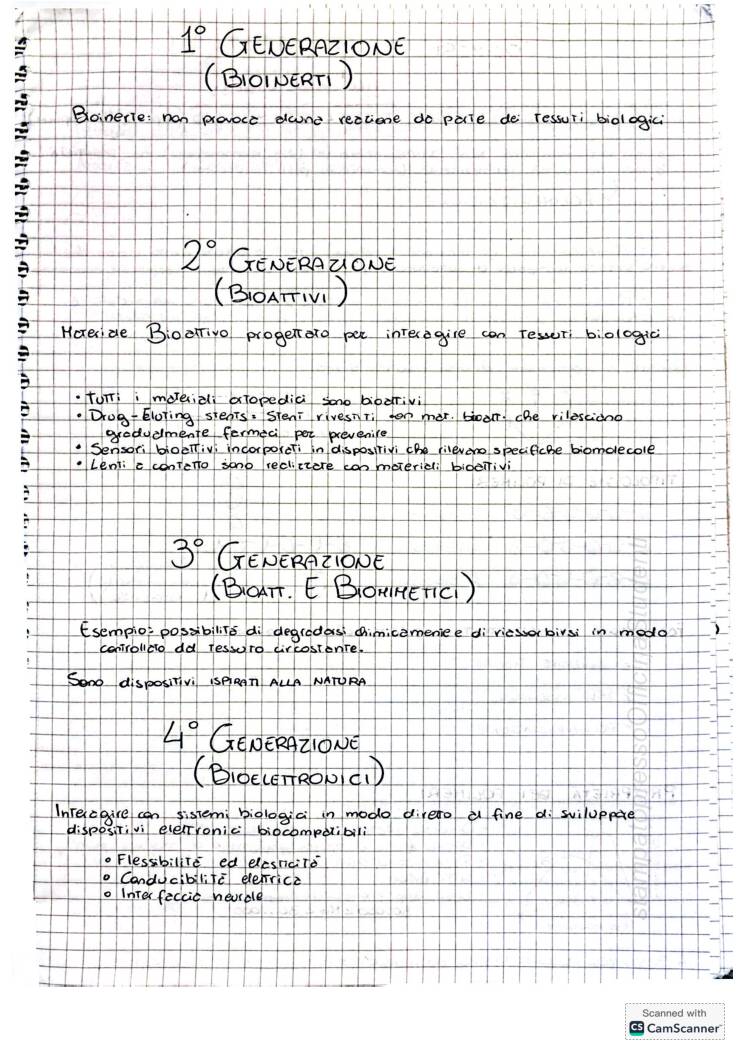 1° GENERAZIONE
(BIOINERTI)
Bioinerte: non provoca alcuna reazione da parte dei tessuti biologici
2° GENERAZIONE
(BIOATTIVI)
Materiale Bioattivo progettato per interagire con tessuti biologici
• Tutti i materiali ortopedici sono bioattivi
• Drug-Eluting stents: Stent rivestiti con mat. bioatt. che rilasciano
gradualmente farmaci per prevenire
• Sensori bioattivi incorporati in dispositivi che rilevano specifiche biomolecole
• Lenti a contatto sono realizzate con materiali bioattivi
3° GENERAZIONE
(BIOATT. E BIOMIMETICI)
Esempio: possibilità di degradarsi chimicamente e di riassorbirsi in modo
controllato dal tessuto circostante.
Sono dispositivi ISPIRATI ALLA NATURA
4° GENERAZIONE
(BIOELETTRONICI)
Interagire con sistemi biologici in modo diretto al fine di sviluppare
dispositivi elettronici biocompatibili
• Flessibilità ed elasticità
• Conducibilità elettrica
• Interfaccia neurale
stampato presso Officina Studenti
Scanned with
CS CamScanner